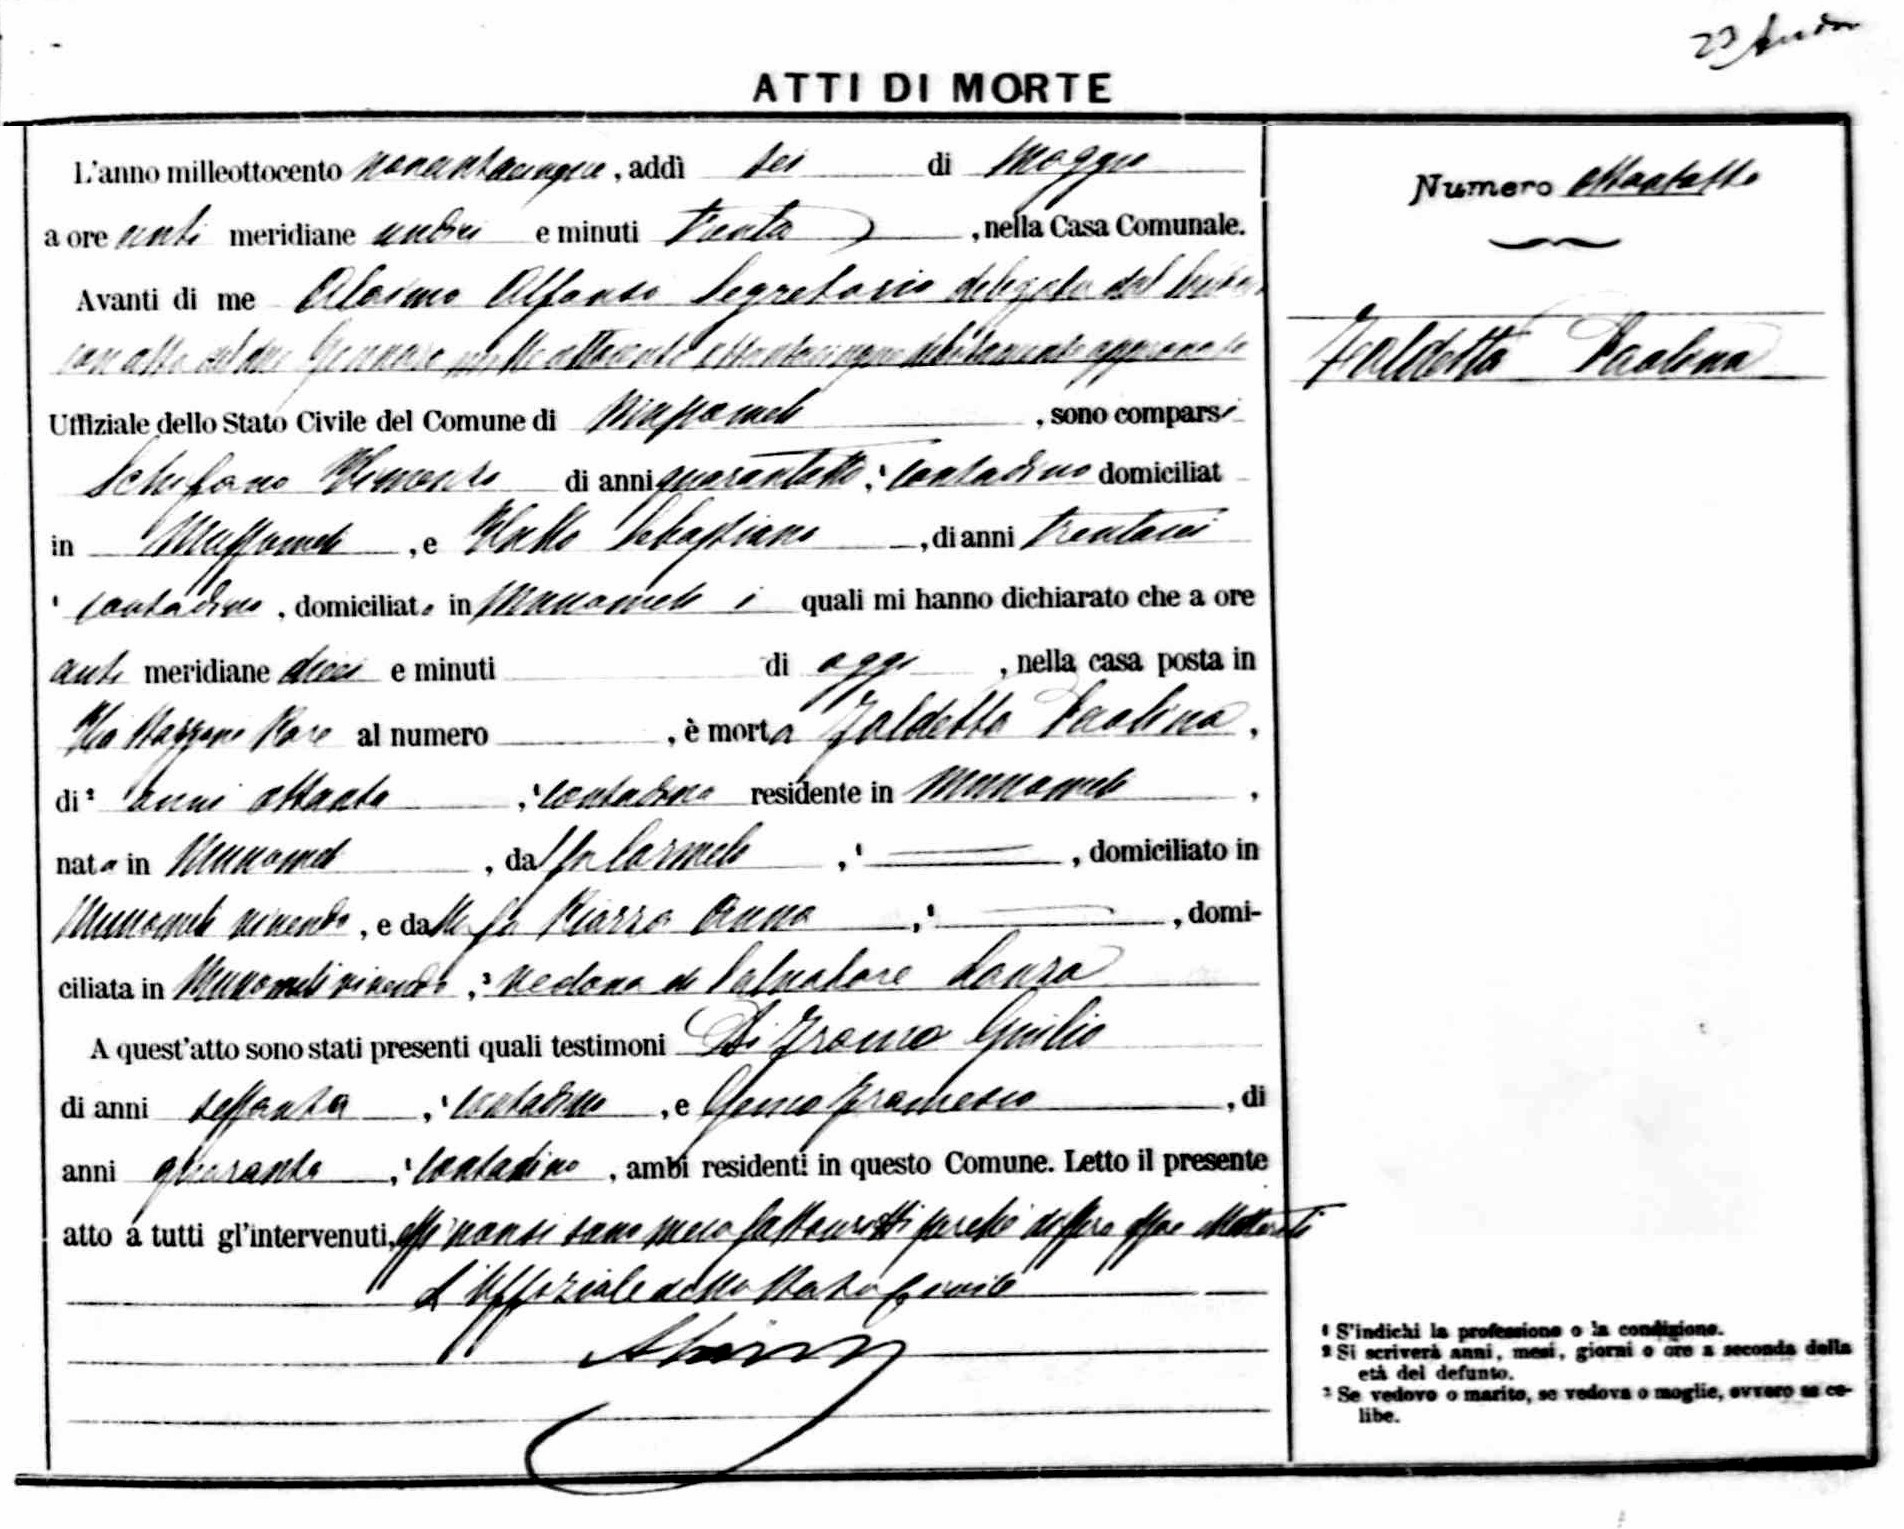 ATTI DI MORTE
L'anno milleottocento novantacinque, addì sei di Maggio
a ore anti meridiane undici e minuti trenta, nella Casa Comunale.
Avanti di me Alaimo Alfonso Segretario delegato dal
con atto del due Gennaro mille ottocento ottantacinque debitamente approvato
Uffiziale dello Stato Civile del Comune di Mussomeli, sono comparsi
Schifano Vincenzo di anni quarantotto, ¹ contadino domiciliat
in Mussomeli, e Sebastiano, di anni trentasei
¹ contadino, domiciliato in Mussomeli i quali mi hanno dichiarato che a ore
anti meridiane dieci e minuti di oggi, nella casa posta in
Via al numero, è morta Faldetta Paolina,
di ² anni ottanta, ¹ contadina residente in Mussomeli,
nata in Mussomeli, dal fu Carmelo, ¹, domiciliato in
Mussomeli vivendo, e dalla fu Piazza Anna, ¹, domi-
ciliata in Mussomeli vivendo, ³ vedova di Salvatore Lanza
A quest'atto sono stati presenti quali testimoni Di Franco Giulio
di anni sessanta, ¹ contadino, e Genco Francesco, di
anni quaranta, ¹ contadino, ambi residenti in questo Comune. Letto il presente
atto a tutti gl'intervenuti, essi non si sono meco sottoscritti perchè dissero essere illetterati
L'Uffiziale dello Stato Civile
Alaimo
Numero ottantotto
Faldetta Paolina
¹ S'indichi la professione o la condizione.
² Si scriverà anni, mesi, giorni o ore a seconda della
età del defunto.
³ Se vedovo o marito, se vedova o moglie, ovvero se ce-
libe.